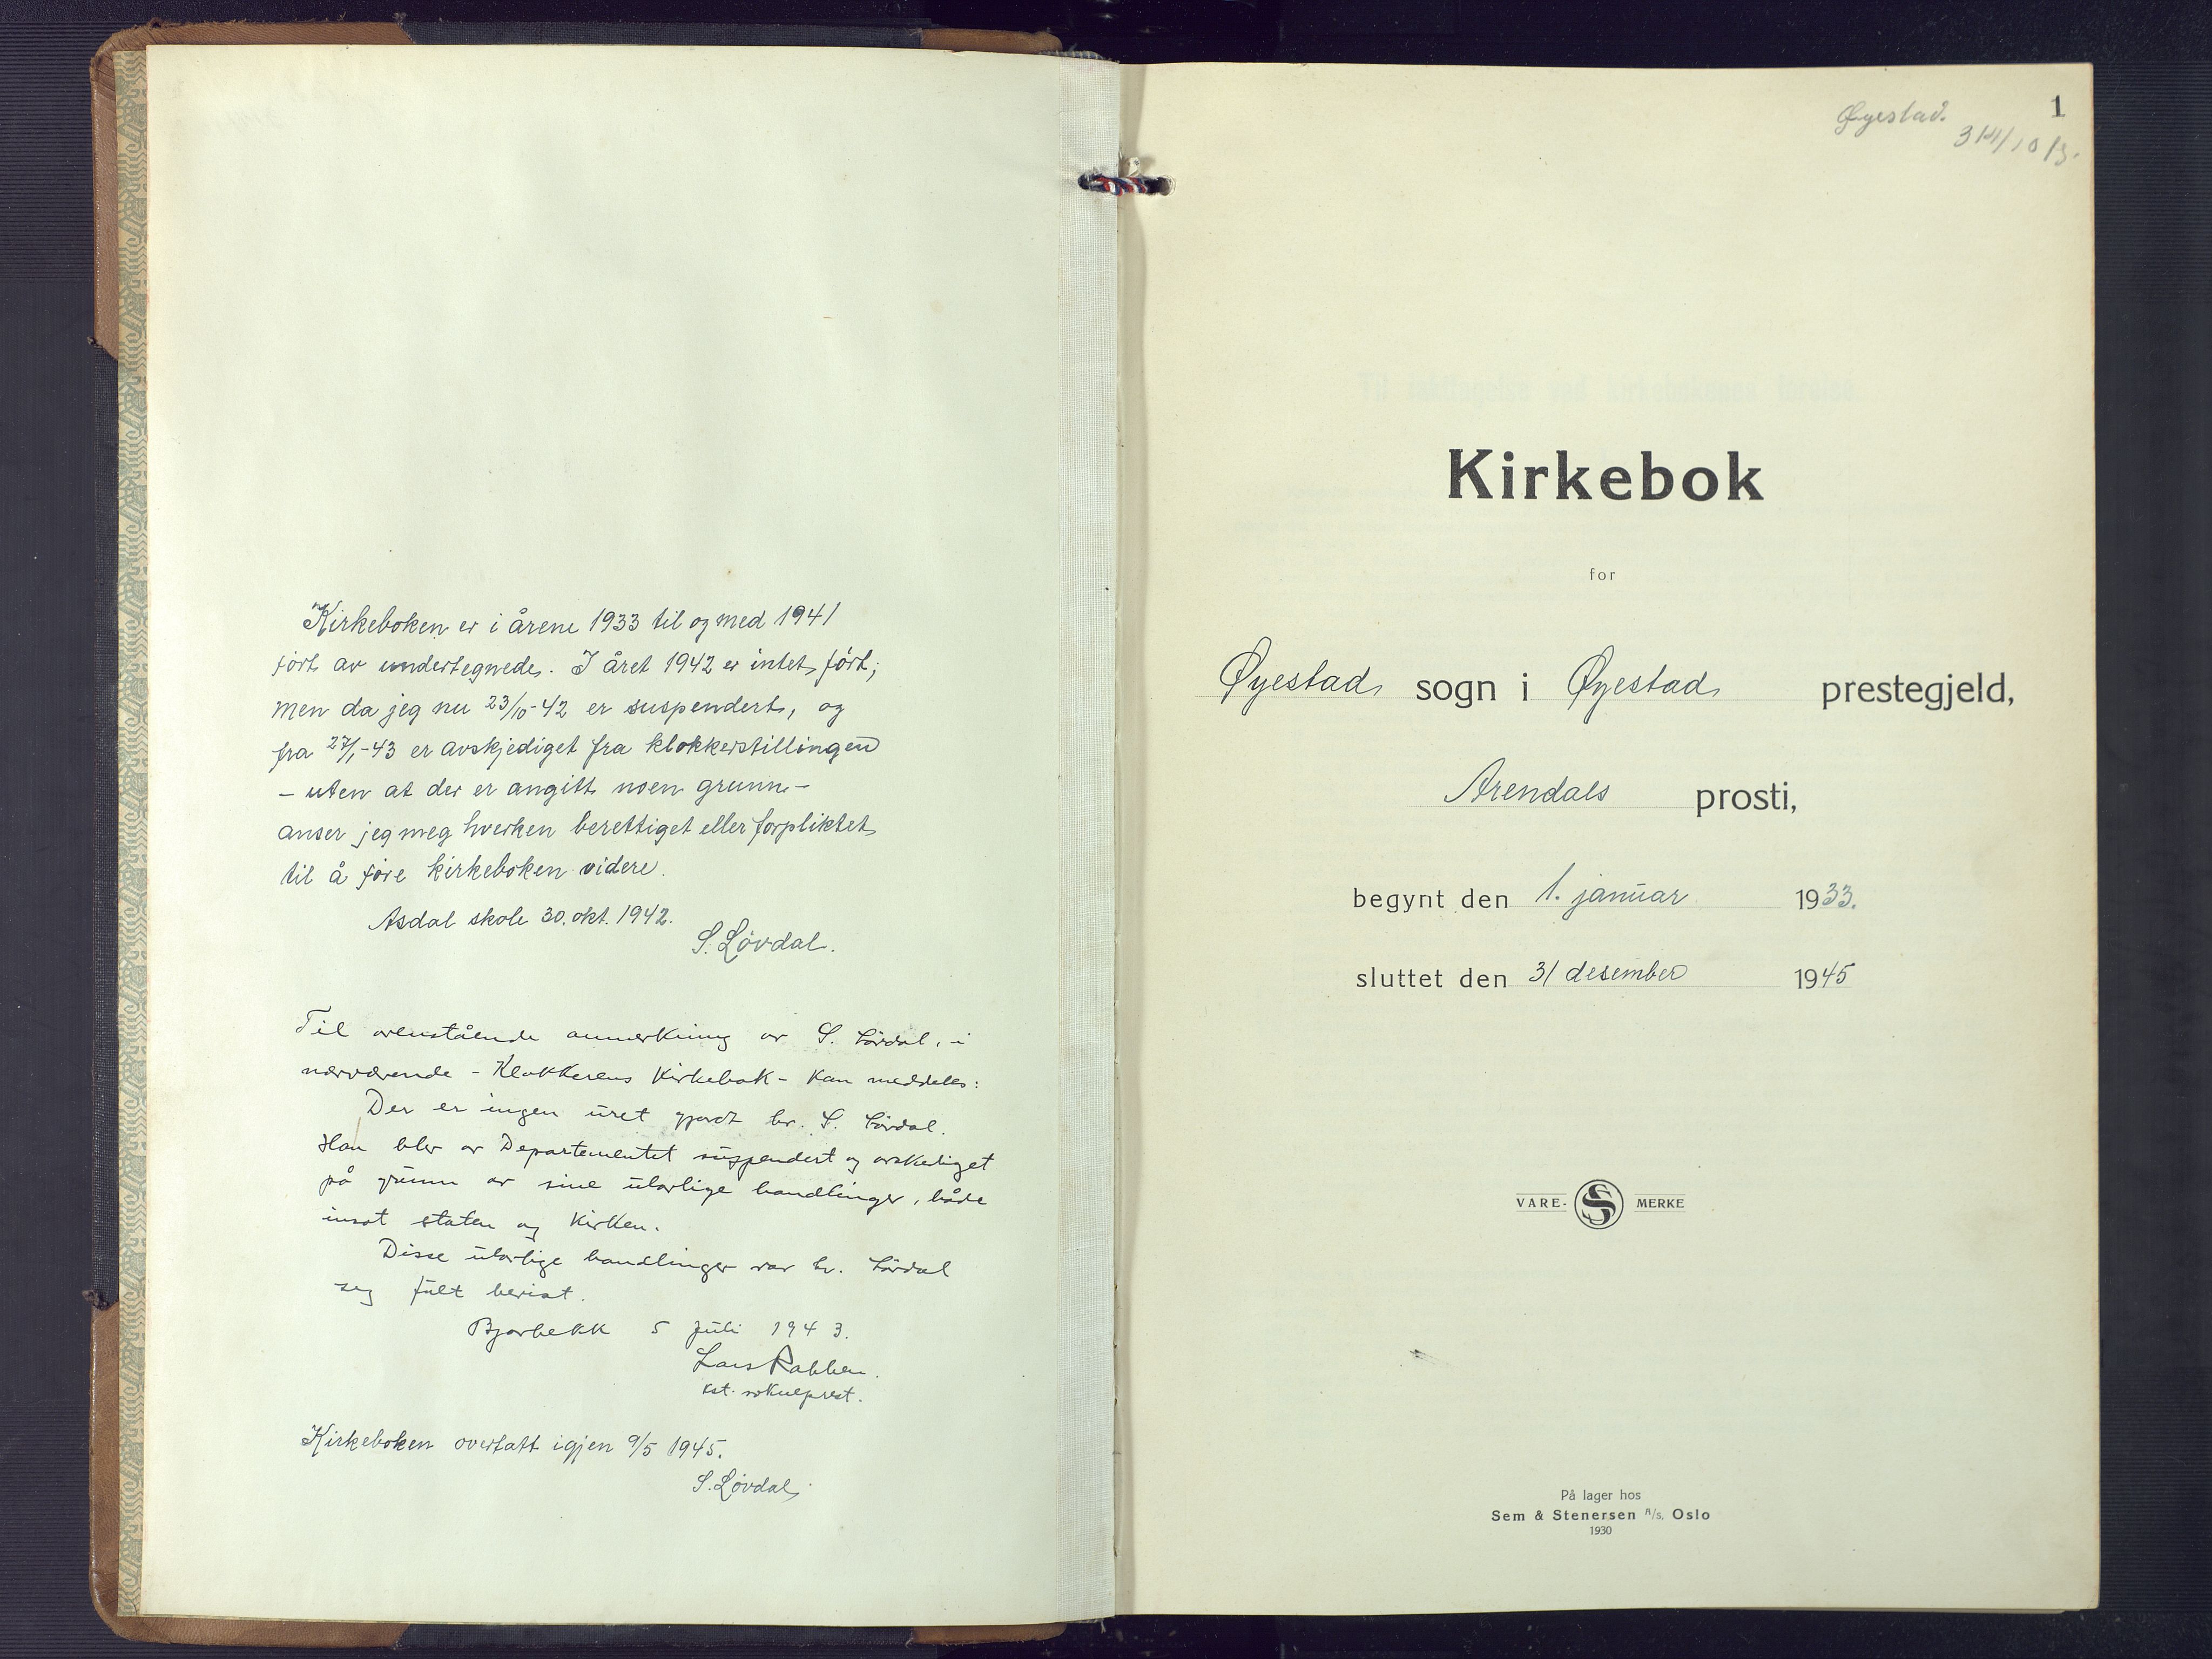 Kirkeboken er i årene 1933 til og med 1941
ført av undertegnede. I året 1942 er intet ført;
men da jeg nu 23/10-42 er suspendert, og
fra 27/1-43 er avskjediget fra klokkerstillingen
- uten at der er angitt noen grunn -
anser jeg meg hverken berettiget eller forpliktet
til å føre kirkeboken videre.
Asdal skole 30. okt. 1942.
S. Løvdal.
Til ovenstående anmerkning av S. Lövdal, i
nærværende - Klokkerens Kirkebok - kan meddeles:
Der er ingen uret gjordt hr. S. Lövdal.
Han blev av Departementet suspendert og avskediget
på grunn av sine ulovlige handlinger, både
imot staten og Kirken.
Disse ulovlige handlinger var hr. Lövdal
seg fult bevist.
Bjorbekk 5 juli 1943.
Lars Rabben.
kst. sokneprest.
Kirkeboken overtatt igjen 9/5 1945.
S. Løvdal.
1
Øyestad.
Kirkebok
for
Øyestad sogn i Øyestad prestegjeld,
Arendals prosti,
begynt den 1. januar 1933.
sluttet den 31 desember 1945
VARE- S MERKE
På lager hos
Sem & Stenersen A/s, Oslo
1930